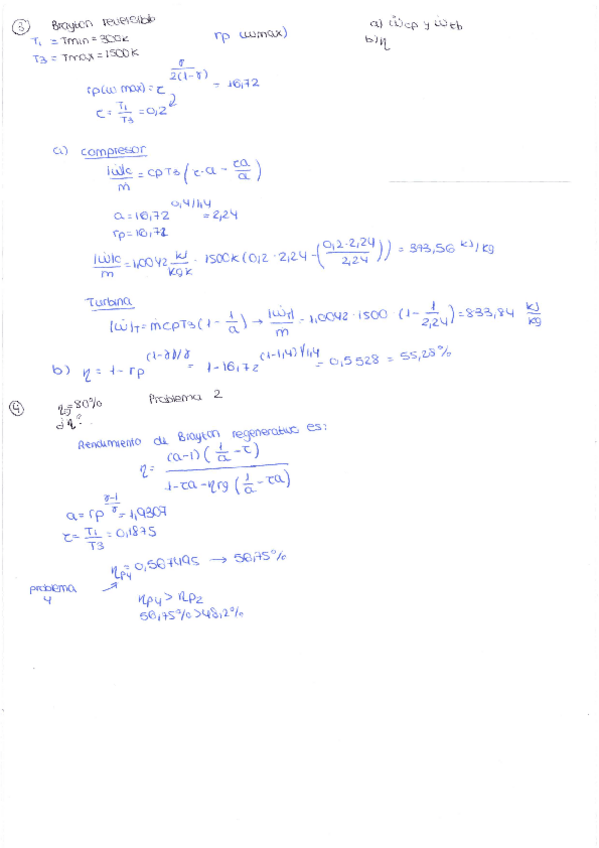 ③ Brayton reversible
T₁ = Tmin = 300K
T3 = Tmax = 1500K
rp (ẇmax)
a) ẇcp y ẇtb
b) η
rp(ẇ max) = τ^(γ/2(1-γ)) = 16,72
τ = T₁/T3 = 0,2
a) compresor
|ẇ|c/ṁ = cpT3 (τ·a - τa/a)
a = 16,72^(0,4/1,4) = 2,24
rp = 16,72
|ẇ|c/ṁ = 1,0042 kJ/kgK · 1500K (0,2·2,24 - (0,2·2,24/2,24)) = 373,56 kJ/kg
Turbina
|ẇ|T = ṁcpT3 (1 - 1/a) → |ẇT|/ṁ = 1,0042·1500 (1 - 1/2,24) = 833,84 kJ/kg
b) η = 1 - rp^((1-γ)/γ) = 1 - 16,72^((1-1,4)/1,4) = 0,5528 = 55,28%
④ = 80% Problema 2
¿η?
Rendimiento de Brayton regenerativo es:
η = (a-1)(1/a - τ) / 1 - τa - ηrg (1/a - τa)
a = rp^(γ-1/γ) = 1,9307
τ = T₁/T3 = 0,1875
ηp4 = 0,567495 → 56,75%
problema 4
ηp4 > ηp2
56,75% > 48,2%